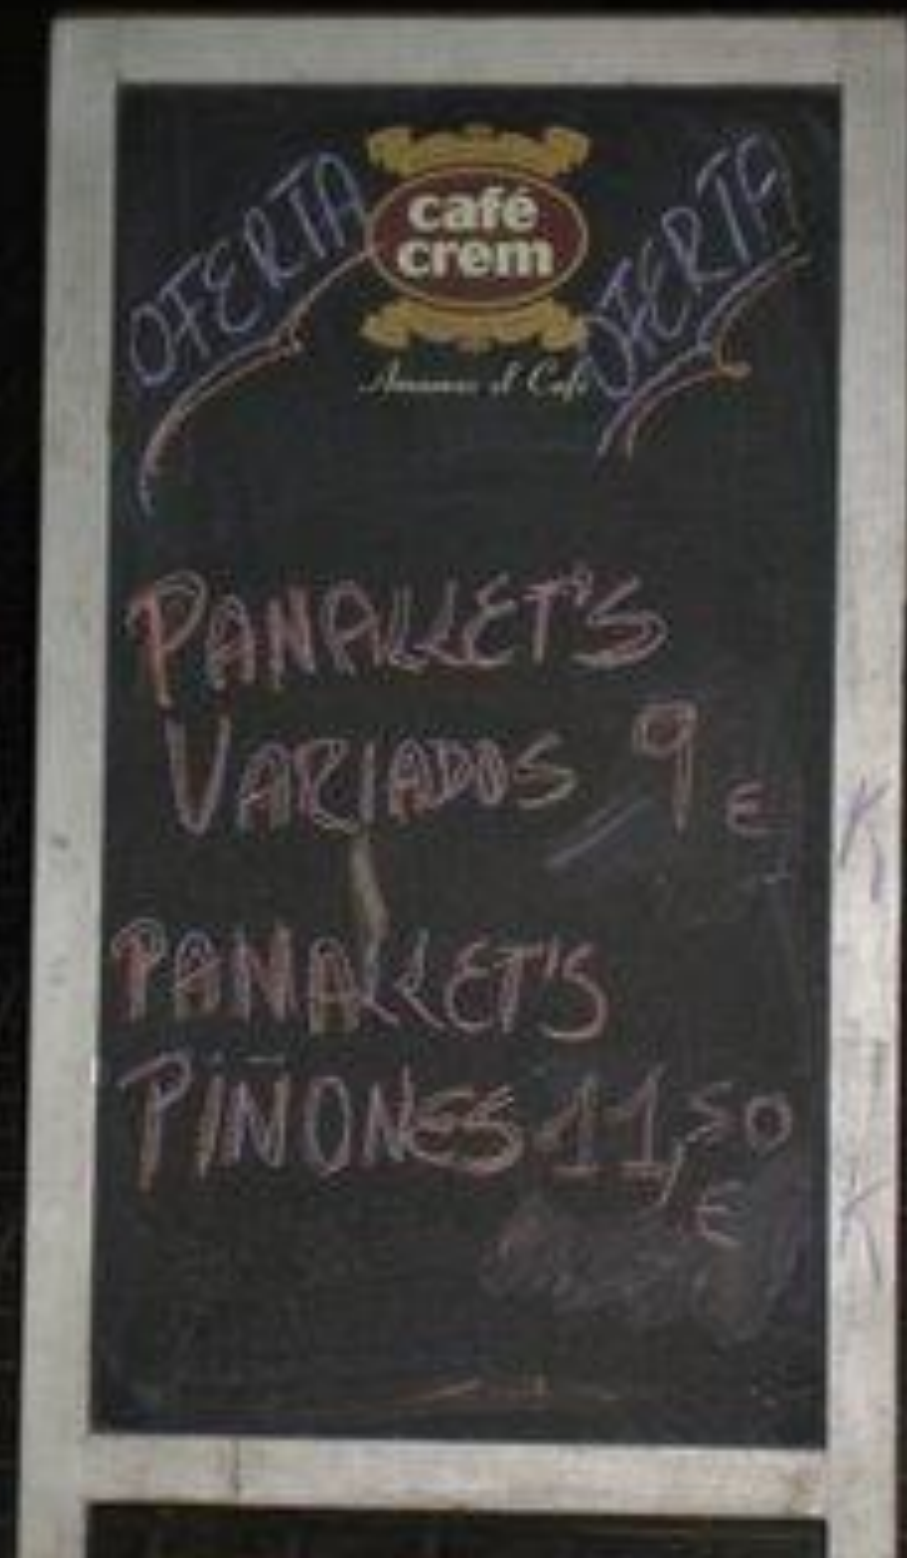 OFERTA
café
crem
OFERTA
Amamos el Café
PANALLET'S
VARIADOS 9 €
PANALLET'S
PIÑONES 11,50
€